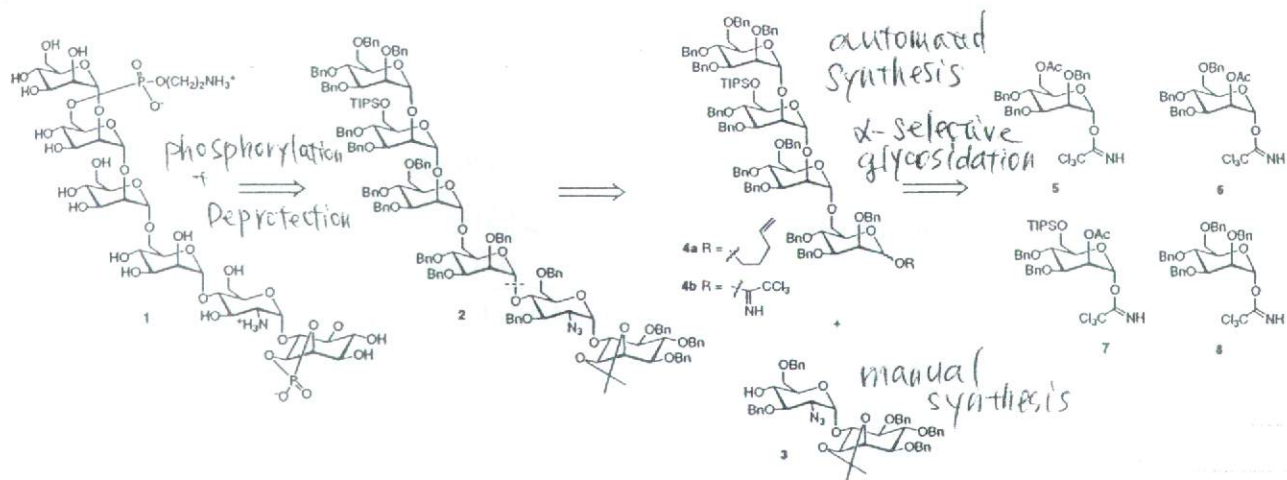 OH
OH
HO
HO
O
O
P
O(CH₂)₂NH₃⁺
O⁻
HO
HO
O
OH
HO
HO
O
OH
HO
HO
O
OH
HO
⁺H₃N
O
OH
OH
O
P
⁻O
O
1
phosphorylation
+
Deprotection
OBn
OBn
BnO
BnO
O
TIPSO
BnO
BnO
O
OBn
BnO
BnO
O
OBn
BnO
BnO
O
OBn
BnO
N₃
O
OBn
OBn
OBn
2
OBn
OBn
BnO
BnO
O
TIPSO
BnO
BnO
O
OBn
BnO
BnO
O
OBn
BnO
BnO
O
OR
4a R =
4b R =
CCl₃
NH
+
OBn
HO
BnO
N₃
O
OBn
OBn
OBn
3
automated
synthesis
α-selective
glycosidation
manual
synthesis
OAc
OBn
BnO
BnO
O
Cl₃C
NH
5
OBn
OAc
BnO
BnO
O
Cl₃C
NH
6
TIPSO
OAc
BnO
BnO
O
Cl₃C
NH
7
OBn
OBn
BnO
BnO
O
Cl₃C
NH
8